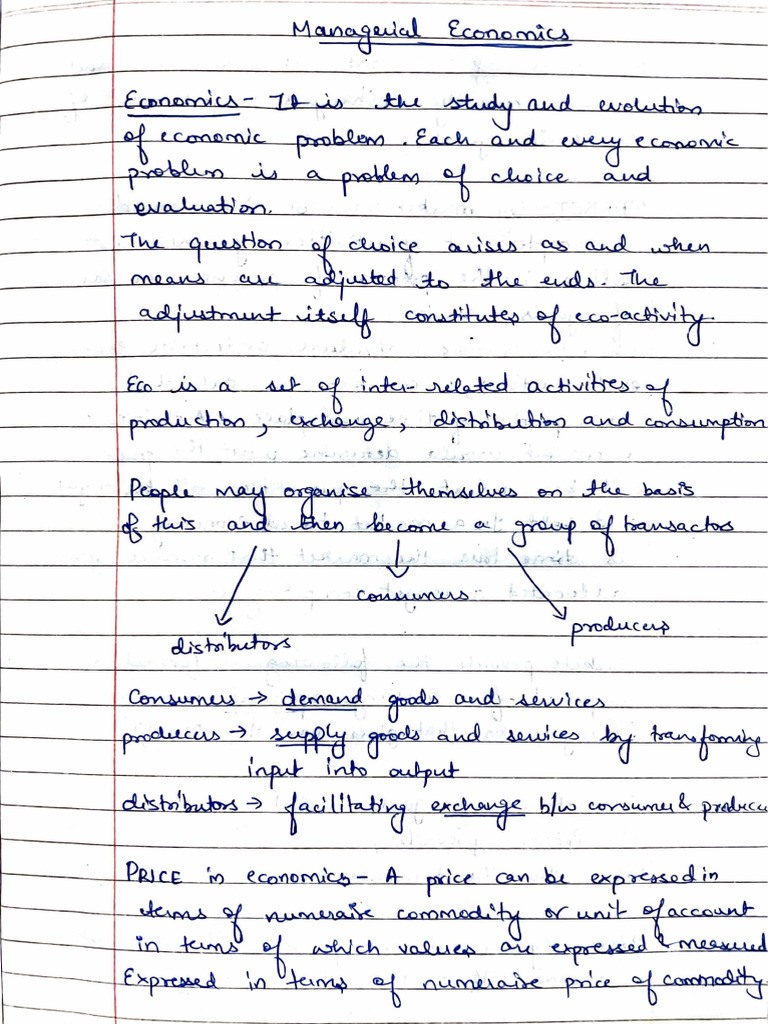 Managerial Economics
Economics - It is the study and evolution
of economic problem. Each and every economic
problem is a problem of choice and
evaluation.
The question of choice arises as and when
means are adjusted to the ends. The
adjustment itself constitutes of eco-activity.
Eco is a set of inter-related activities of
production, exchange, distribution and consumption
People may organise themselves on the basis
of this and then become a group of transactors
consumers
producers
distributors
Consumers → demand goods and services
producers → supply goods and services by transforming
input into output
distributors → facilitating exchange b/w consumer & produce
PRICE in economics - A price can be expressed in
terms of numeraise commodity or unit of account
in terms of which values are expressed & measured
Expressed in terms of numeraise price of commodity